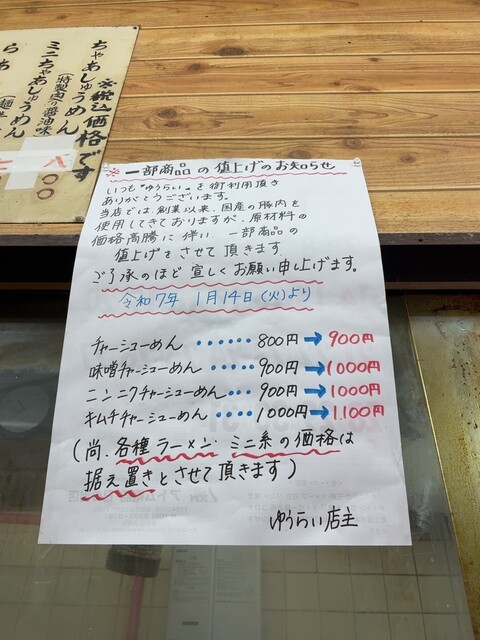 ※税込価格です
ちゃあしゅうめん
ミニちゃあしゅうめん
(特製肉入り醤油味
八〇〇
らあ
(麺
※一部商品の値上げのお知らせ
いつも"ゆうらい"を御利用頂き
ありがとうございます。
当店では、創業以来、国産の豚肉を
使用してきておりますが、原材料の
価格高騰に伴い、一部商品の
値上げをさせて頂きます
ご了承のほど宜しくお願い申し上げます。
令和7年 1月14日(火)より
チャーシューめん ・・・・・・ 800円→900円
味噌チャーシューめん ・・・・・ 900円→1000円
ニンニクチャーシューめん・・・ 900円→1000円
キムチチャーシューめん ・・・・ 1000円→1,100円
(尚、各種ラーメン、ミニ系の価格は
据え置きとさせて頂きます)
ゆうらい店主